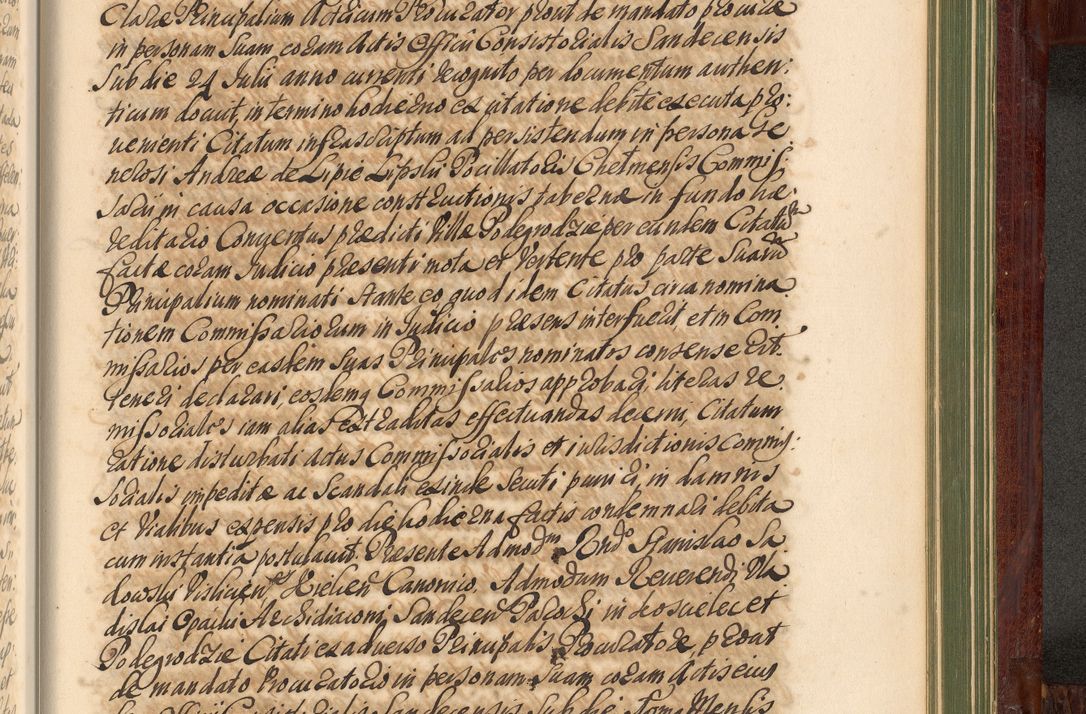 Claræ Principalium Actricum Procurator prout de mandato procuræ
in personam Suam coram Actis Officii Consistorialis Sandecensis
Sub die 24 Julii anno currenti recognito per documentum authen:
ticum docuit, in termino hodierno ex citatione debite executa pro:
venienti Citatum infrascriptum ad persistendum in persona Ge
nerosi Andreæ de Lipie Lipski Pocillatoris Chelmensis Commis:
sarium causa occasione constructionis tabernæ in fundo hæ:
reditario Conventus prædicti Villæ Podegrodzie per eundem Citatum
factæ coram Judicio præsenti mota et Vertente pro parte Suarum
Principalium nominati stante eo quod idem Citatus circa nomina
tionem Commissariorum in Judicio præsens interfuerit, et in Com
missarios per easdem Suas Principales nominatos consenserit
teneri declarari, eosdemq Commissarios approbari, literas re
missoriales iam alias extraditas effectuandas decerni, Citatum
ratione disturbati actus Commissorialis et iurisdictionis Commis:
sorialis impeditæ ac Scandali exinde Secuti puniri, in damnis
et Vialibus expensis pro die hodierna factis condemnari debita
cum instantia postulavit. Præsente Admodm Rndo Stanislao Sa
dowski Vislicien Kielcen Canonico, Admodum Reverendi Vla
dislai Opacki Archidiaconi Sandecen Parochi in Koscielec et
Podegrodzie Citati ex adverso Principalis Procuratore, prout
de mandato Procuratorio in personam Suam coram Actis eius
Sandecensis Sub die Mensis